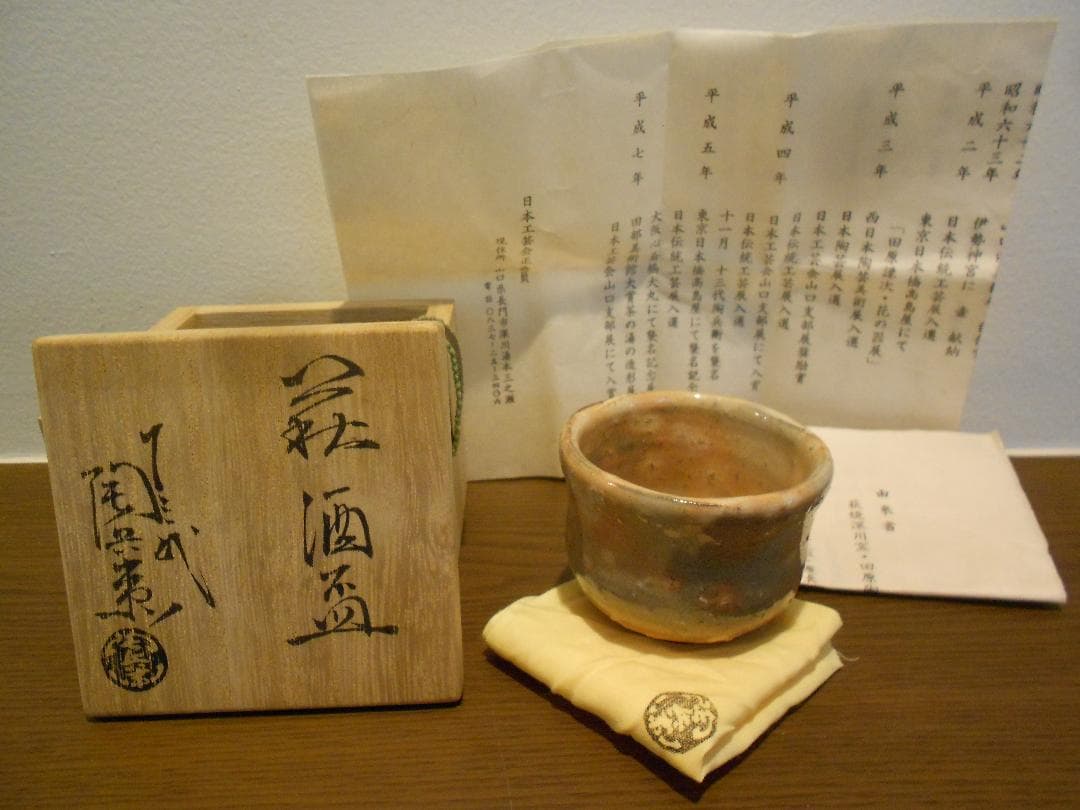 萩
酒盃
十三代
陶兵衛
昭和六十三年
伊勢神宮に 献納
平成二年
日本伝統工芸展入選
東京日本橋高島屋にて
「田原謙次・花の器展」
平成三年
西日本陶芸美術展入選
日本陶芸展入選
日本工芸会山口支部展奨励賞
日本伝統工芸展入選
平成四年
日本工芸会山口支部展にて入賞
日本伝統工芸展入選
十一月 十三代陶兵衛を襲名
平成五年
東京日本橋高島屋にて襲名記念
日本伝統工芸展入選
大阪心斎橋大丸にて襲名記念
平成七年
田部美術館大賞茶の湯の造形展
日本工芸会山口支部展にて入賞
日本工芸会正会員
現住所 山口県長門市深川湯本三之瀬
由来書
萩焼深川窯・田原陶